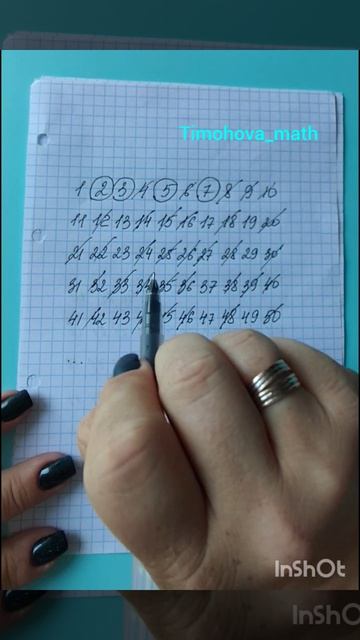 Timohova_math
1 2 3 4 5 6 7 8 9 10
11 12 13 14 15 16 17 18 19 20
21 22 23 24 25 26 27 28 29 30
31 32 33 34 35 36 37 38 39 40
41 42 43 45 46 47 48 49 50
....
InShOt
InShOt